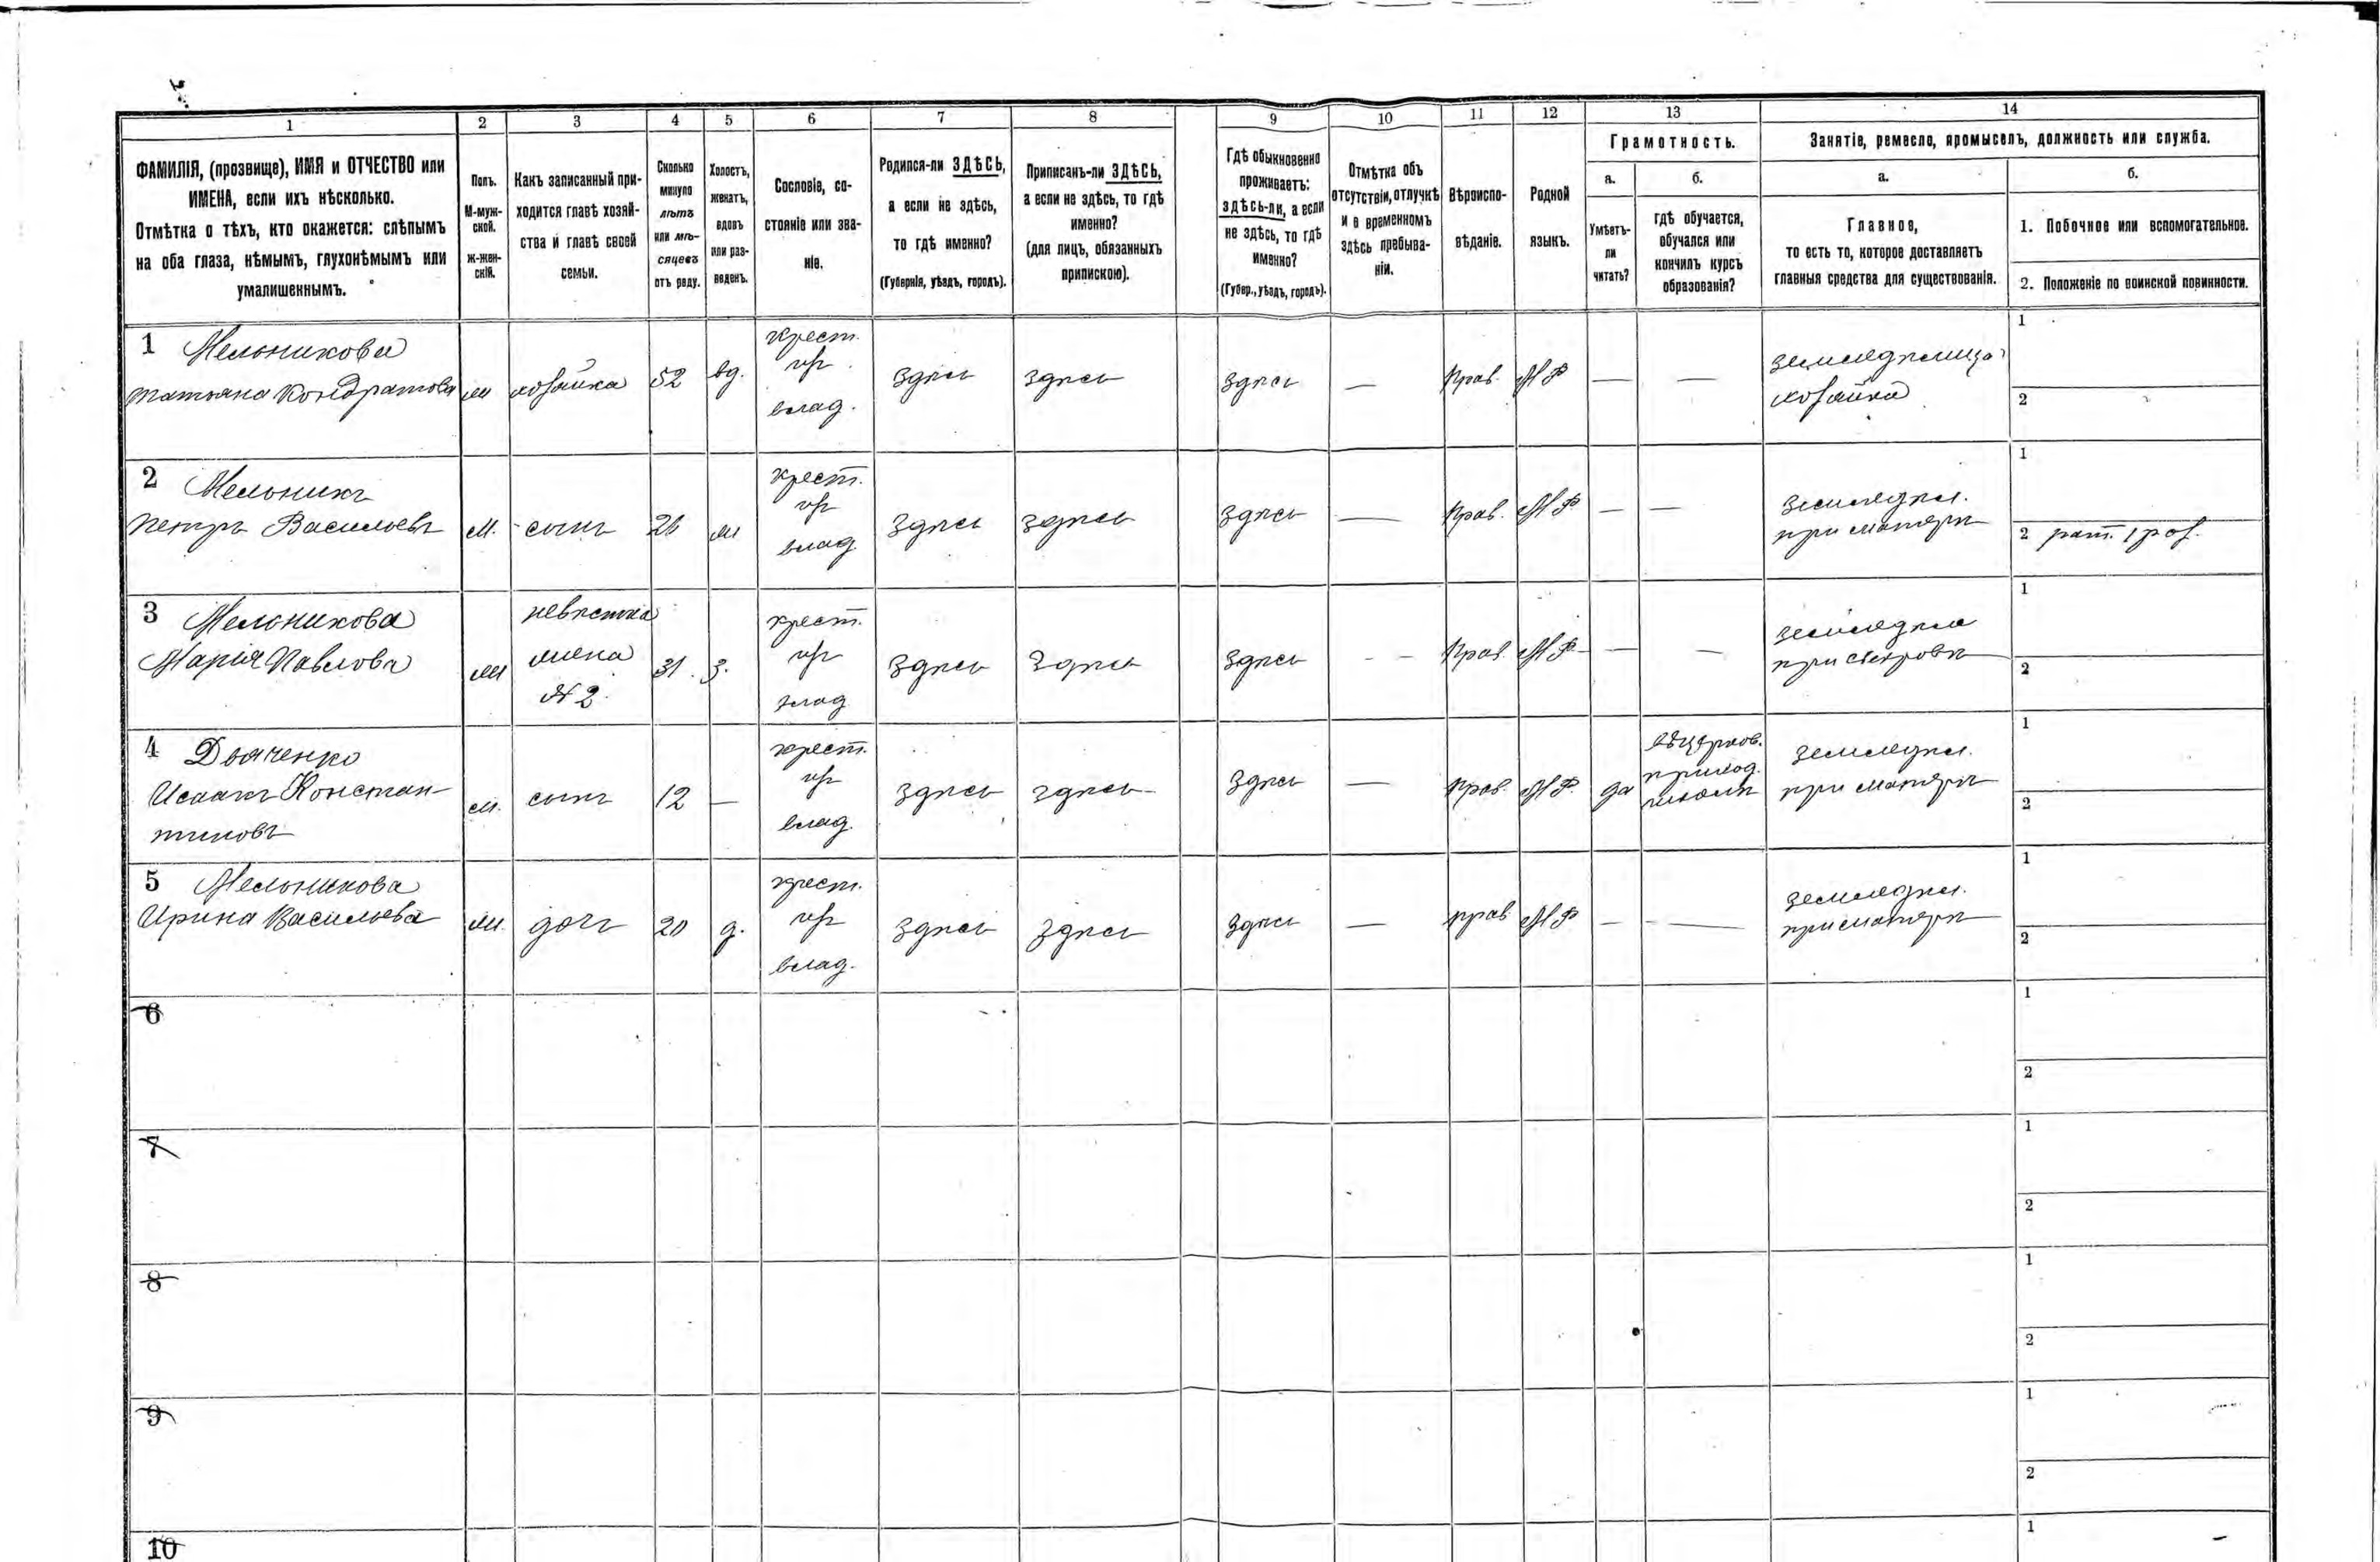 1
2
3
4
5
6
7
8
9
10
11
12
13
14
ФАМИЛІЯ, (прозвище), ИМЯ и ОТЧЕСТВО или
ИМЕНА, если ихъ нѣсколько.
Отмѣтка о тѣхъ, кто окажется: слѣпымъ
на оба глаза, нѣмымъ, глухонѣмымъ или
умалишеннымъ.
Полъ.
М-муж-
ской.
ж-жен-
скій.
Какъ записанный при-
ходится главѣ хозяй-
ства и главѣ своей
семьи.
Сколько
минуло
лѣтъ
или мѣ-
сяцевъ
отъ роду.
Холостъ,
женатъ,
вдовъ
или раз-
веденъ.
Сословіе, со-
стояніе или зва-
ніе.
Родился-ли ЗДѢСЬ,
а если не здѣсь,
то гдѣ именно?
(Губернія, уѣздъ, городъ).
Приписанъ-ли ЗДѢСЬ,
а если не здѣсь, то гдѣ
именно?
(для лицъ, обязанныхъ
припискою).
Гдѣ обыкновенно
проживаетъ:
здѣсь-ли, а если
не здѣсь, то гдѣ
именно?
(Губер., уѣздъ, городъ).
Отмѣтка объ
отсутствіи, отлучкѣ
и о временномъ
здѣсь пребыва-
ніи.
Вѣроиспо-
вѣданіе.
Родной
языкъ.
Грамотность.
а.
Умѣетъ-
ли
читать?
б.
гдѣ обучается,
обучался или
кончилъ курсъ
образованія?
Занятіе, ремесло, промыселъ, должность или служба.
а.
Главное,
то есть то, которое доставляетъ
главныя средства для существованія.
б.
1. Побочное или вспомогательное.
2. Положеніе по воинской повинности.
1 Мельникова
Татьяна Кондратова
ж
хозяйка
52
вд.
крест.
влад.
здѣсь
здѣсь
здѣсь
—
прав.
—
—
земледѣлица
хозяйка
1
2
2 Мельникъ
Петръ Васильевъ
м.
сынъ
ж
крест.
влад
здѣсь
здѣсь
здѣсь
—
прав.
—
—
земледѣл.
при матери
1
2 рат. 1 раз.
3 Мельникова
Марія Павлова
ж
невѣстка
жена
№ 2.
31.
з.
крест.
влад
здѣсь
здѣсь
здѣсь
— —
прав.
—
—
при свекрови
1
2
4 Дьяченко
Исаакъ Констан-
тиновъ
м.
сынъ
12
—
крест.
влад.
здѣсь
здѣсь
здѣсь
—
прав.
да
приход.
школѣ
земледѣл.
при матери
1
2
5 Мельникова
Ирина Васильева
ж.
дочь
20
д.
крест.
влад.
здѣсь
здѣсь
здѣсь
—
прав
—
—
земледѣл.
при матери
1
2
6
1
2
7
1
2
8
1
2
9
1
2
10
1